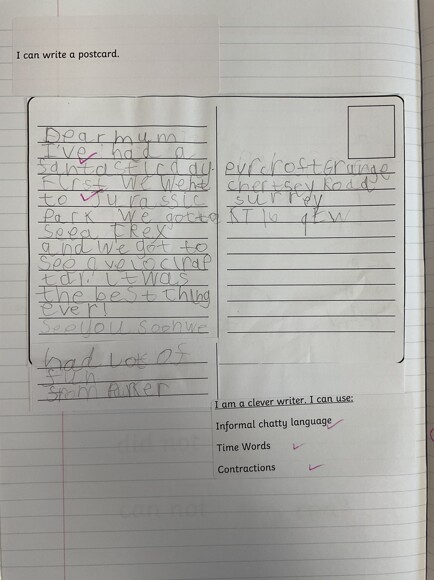 I can write a postcard.
Dear mum
I've had a
fantasticday.
First we went
to Jurassic
Park we gotto
seea trex
and we got to
see a velocirap
tar. it was
the best thing
ever!
Seeyou soonwe
had Lot OF
fun
from Parker
evrcroftGrange
chertsey Road
surrey
KT16 9EW
I am a clever writer. I can use:
Informal chatty language
Time Words
Contractions